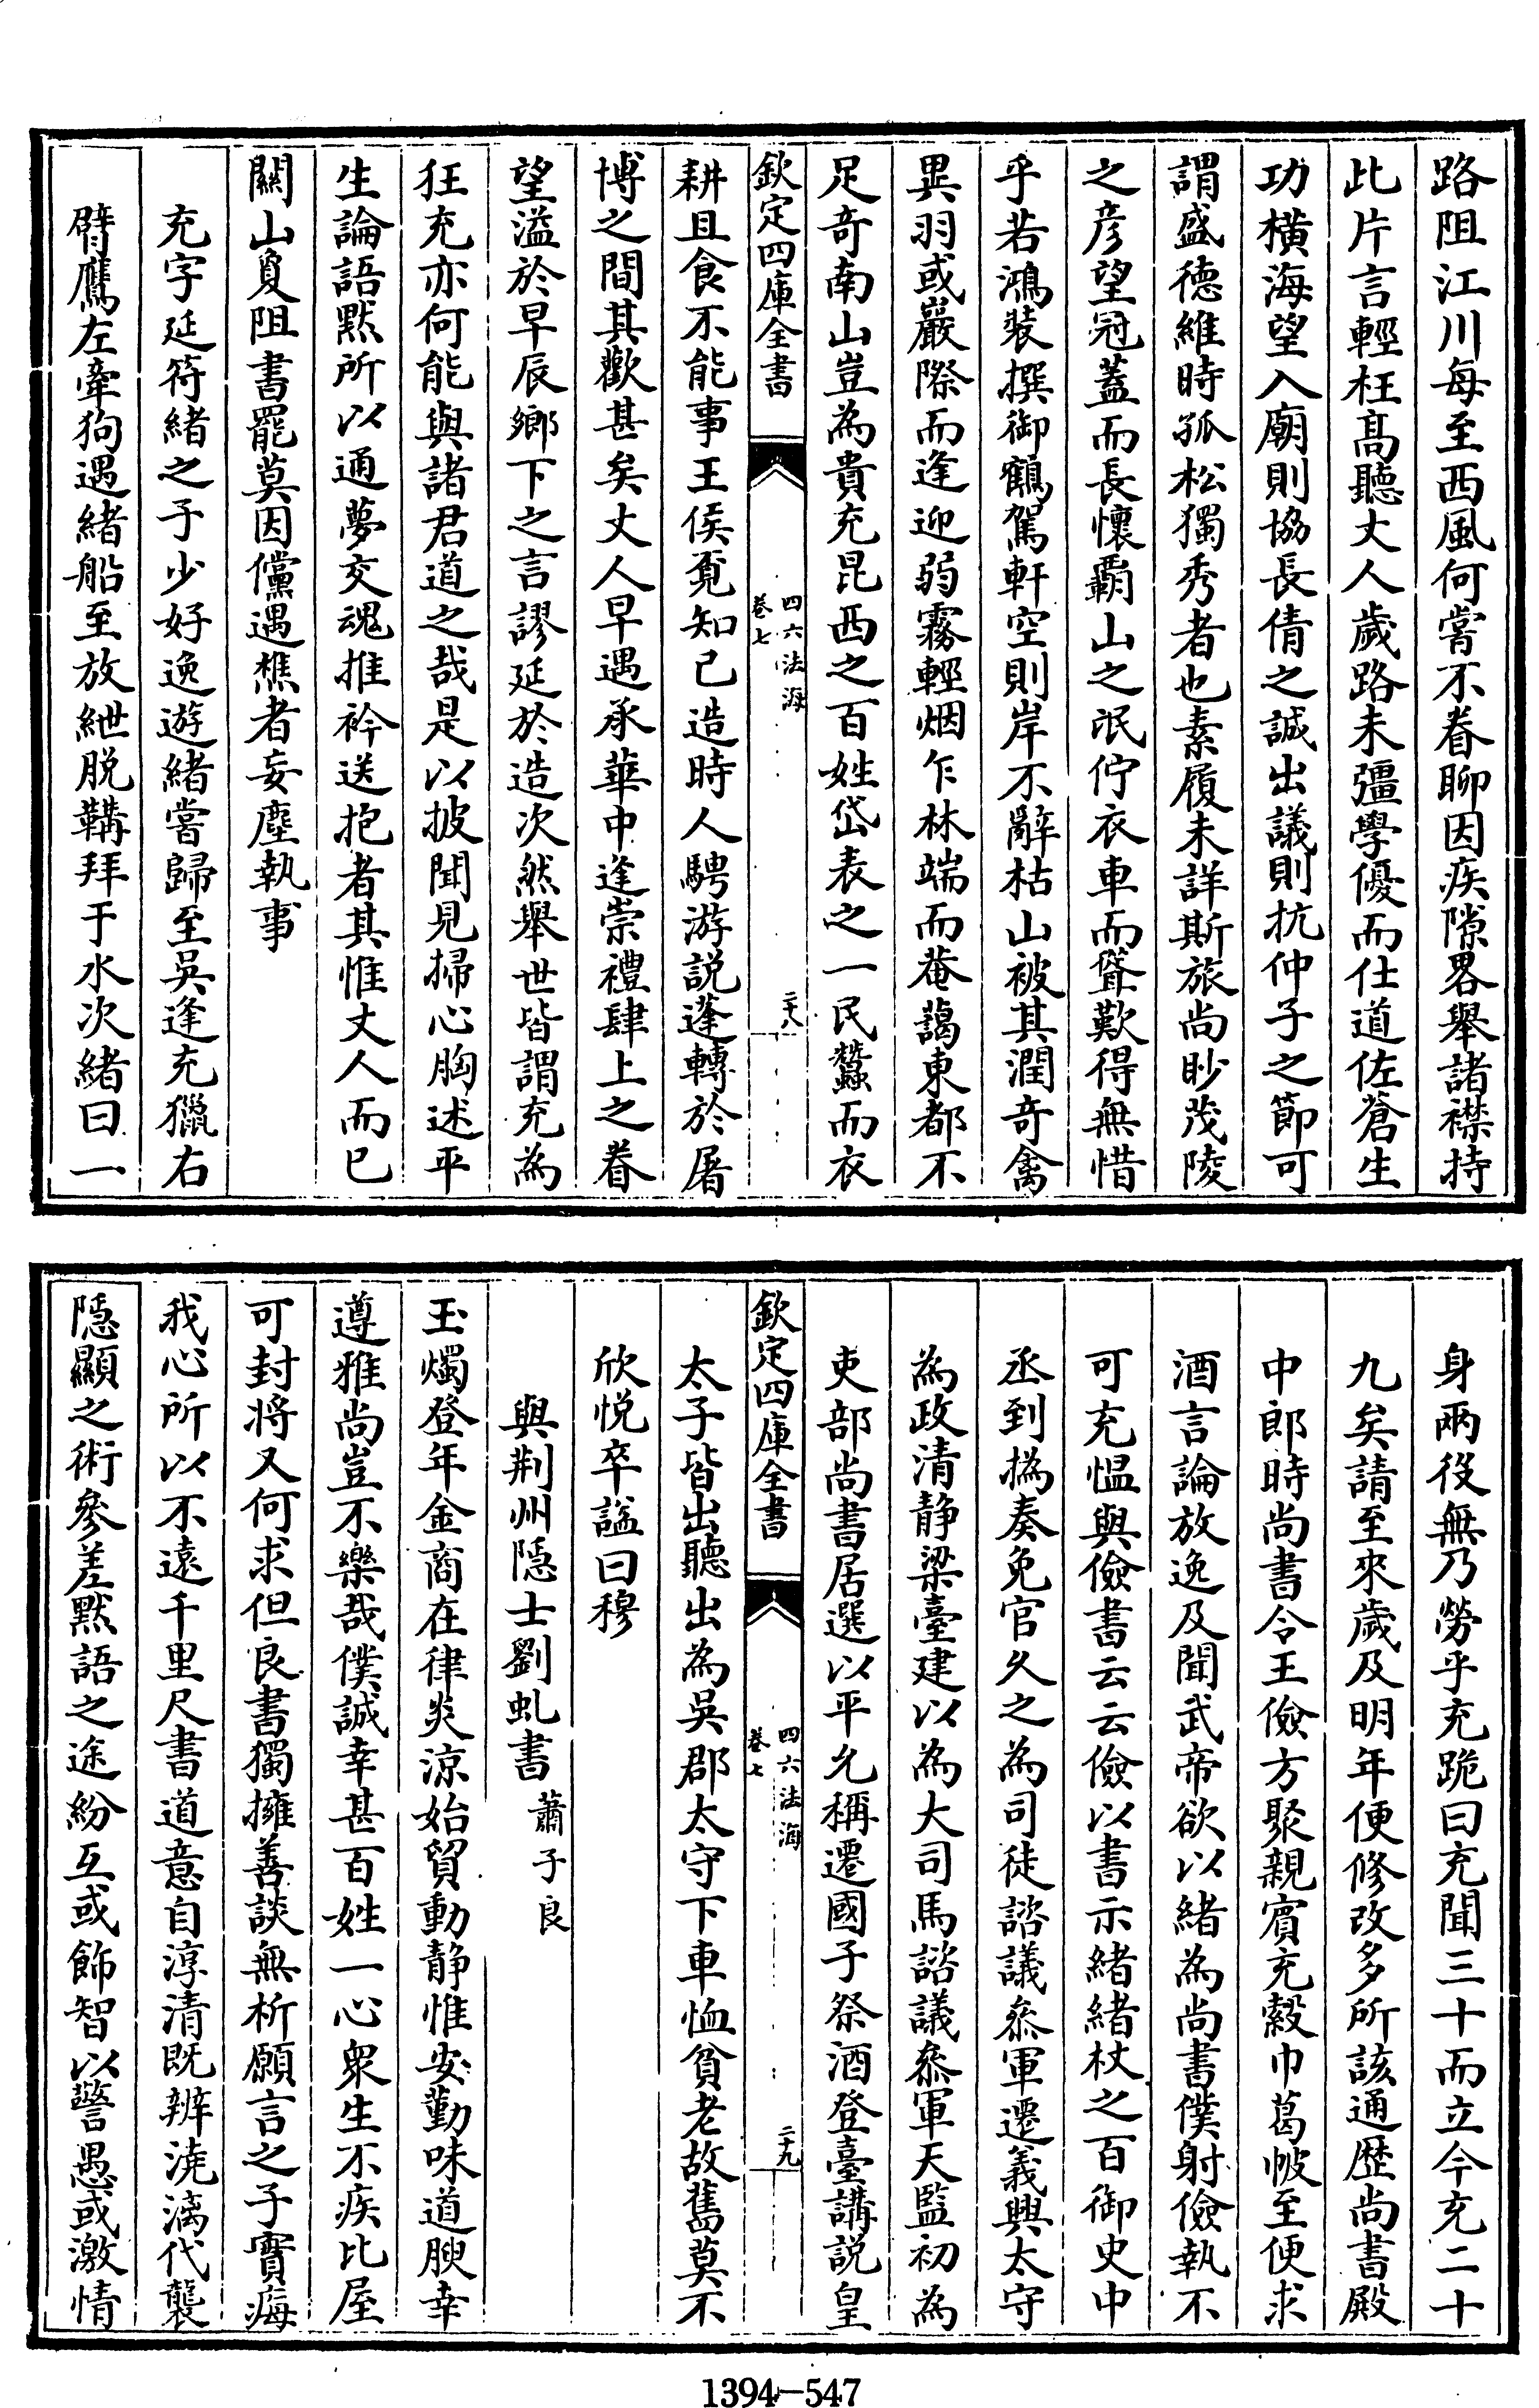 路阻江川每至西風何嘗不眷聊因疾隙畧舉諸襟持
此片言輕枉髙聽丈人歲路未彊學優而仕道佐蒼生
功横海望入廟則協長倩之誠出議則抗仲子之節可
謂盛德維時孤松獨秀者也素履未詳斯旅尚眇茂陵
之彦望冠蓋而長懷霸山之氓佇衣車而聳歎得無惜
乎若鴻裝撰御鶴駕軒空則岸不辭枯山被其潤竒禽
異羽或巖際而逢迎弱霧輕烟乍林端而菴藹東都不
足竒南山豈為貴充昆西之百姓岱表之一民蠶而衣
欽定四庫全書
四六法海
卷七
二十八
耕且食不能事王侯覔知己造時人騁游説蓬轉於屠
博之間其歡甚矣丈人早遇承華中逢崇禮肆上之眷
望溢於早辰鄉下之言謬延於造次然舉世皆謂充為
狂充亦何能與諸君道之哉是以披聞見掃心胸述平
生論語黙所以通夢交魂推衿送抱者其惟丈人而已
關山敻阻書罷莫因儻遇樵者妄塵執事
充字延符緒之子少好逸遊緒嘗歸至吳逢充獵右
臂鷹左牽狗遇緒船至放紲脱鞲拜于水次緒曰一
身兩役無乃勞乎充跪曰充聞三十而立今充二十
九矣請至來歲及明年便修改多所該通歷尚書殿
中郎時尚書令王儉方聚親賓充縠巾葛帔至便求
酒言論放逸及聞武帝欲以緒為尚書僕射儉執不
可充愠與儉書云云儉以書示緒緒杖之百御史中
丞到撝奏免官久之為司徒諮議叅軍遷義興太守
為政清静梁臺建以為大司馬諮議叅軍天監初為
吏部尚書居選以平允稱遷國子祭酒登臺講説皇
欽定四庫全書
四六法海
卷七
二十九
太子皆出聽出為吳郡太守下車恤貧老故舊莫不
欣悦卒諡曰穆
與荆州隠士劉虬書 蕭子良
玉燭登年金商在律炎涼始貿動静惟安勤味道腴幸
遵雅尚豈不樂哉僕誠幸甚百姓一心衆生不疾比屋
可封将又何求但良書獨擁善談無析願言之子實痗
我心所以不遠千里尺書道意自淳清既辨澆漓代襲
隠顯之術參差黙語之途紛互或飾智以警愚或激情
1394-547